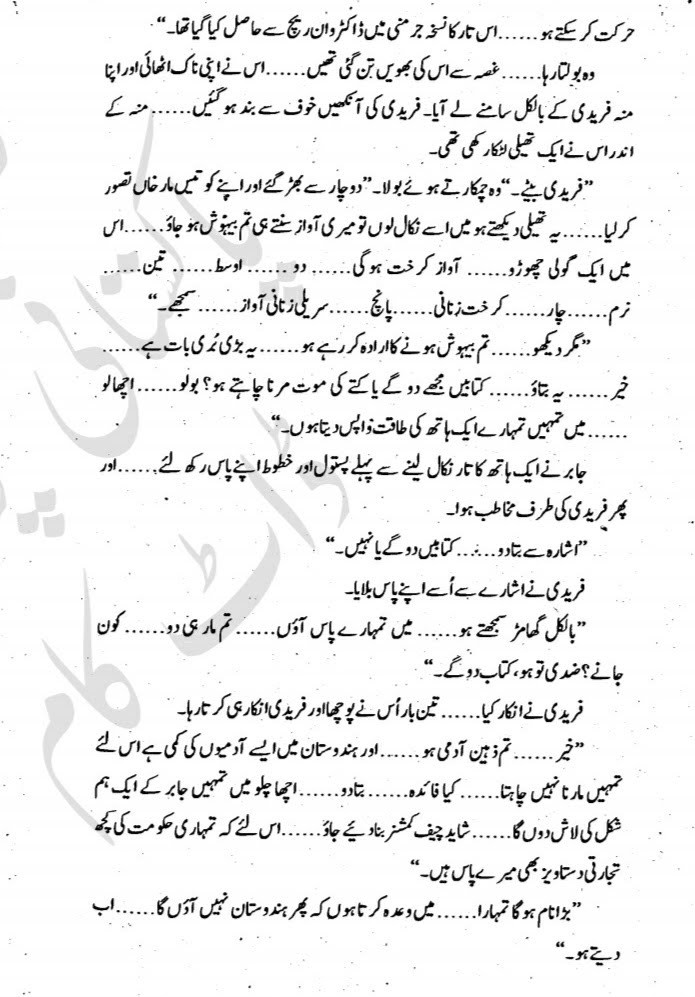 حرکت کر سکتے ہو......اس تار کا نسخہ جرمنی میں ڈاکٹر وان ریچ سے حاصل کیا گیا تھا۔“
وہ بولتا رہا......غصہ سے اس کی بھویں تن گئی تھیں......اس نے اپنی ناک اٹھائی اور اپنا
منہ فریدی کے بالکل سامنے لے آیا۔ فریدی کی آنکھیں خوف سے بند ہو گئیں......منہ کے
اندر اس نے ایک تھیلی لٹکار کھی تھی۔
”فریدی بیٹے۔“ وہ چمکارتے ہوئے بولا۔ ”دو چار سے بھڑ گئے اور اپنے کو تیس مار خاں تصور
کر لیا......یہ تھیلی دیکھتے ہو میں اسے نکال لوں تو میری آواز سنتے ہی تم بیہوش ہو جاؤ......اس
میں ایک گولی چھوڑو...... آواز کرخت ہو گی...... دو...... اوسط...... تین......
نرم......چار......کرخت زنانی......پانچ......سریلی زنانی آواز......سمجھے۔“
”مگر دیکھو......تم بیہوش ہونے کا ارادہ کر رہے ہو......یہ بڑی بُری بات ہے......
خیر......یہ بتاؤ......کتابیں مجھے دو گے یا کتے کی موت مرنا چاہتے ہو؟ بولو......اچھا لو
......میں تمہیں تمہارے ایک ہاتھ کی طاقت واپس دیتا ہوں۔“
جابر نے ایک ہاتھ کا تار نکال لینے سے پہلے پستول اور خطوط اپنے پاس رکھ لئے......اور
پھر فریدی کی طرف مخاطب ہوا۔
”اشارہ سے بتا دو......کتابیں دو گے یا نہیں۔“
فریدی نے اشارے سے اُسے اپنے پاس بلایا۔
”بالکل گھامڑ سمجھتے ہو......میں تمہارے پاس آؤں......تم مار ہی دو......کون
جانے؟ ضدی تو ہو، کتاب دو گے۔“
فریدی نے انکار کیا......تین بار اُس نے پوچھا اور فریدی انکار ہی کرتا رہا۔
”خیر......تم ذہین آدمی ہو......اور ہندوستان میں ایسے آدمیوں کی کمی ہے اس لئے
تمہیں مارنا نہیں چاہتا......کیا فائدہ......بتا دو......اچھا چلو میں تمہیں جابر کے ایک ہم
شکل کی لاش دوں گا......شاید چیف کمشنر بنا دیئے جاؤ......اس لئے کہ تمہاری حکومت کی کچھ
تجارتی دستاویز بھی میرے پاس ہیں۔“
”بڑا نام ہو گا تمہارا......میں وعدہ کرتا ہوں کہ پھر ہندوستان نہیں آؤں گا......اب
دیتے ہو۔“
ڈاٹ کام